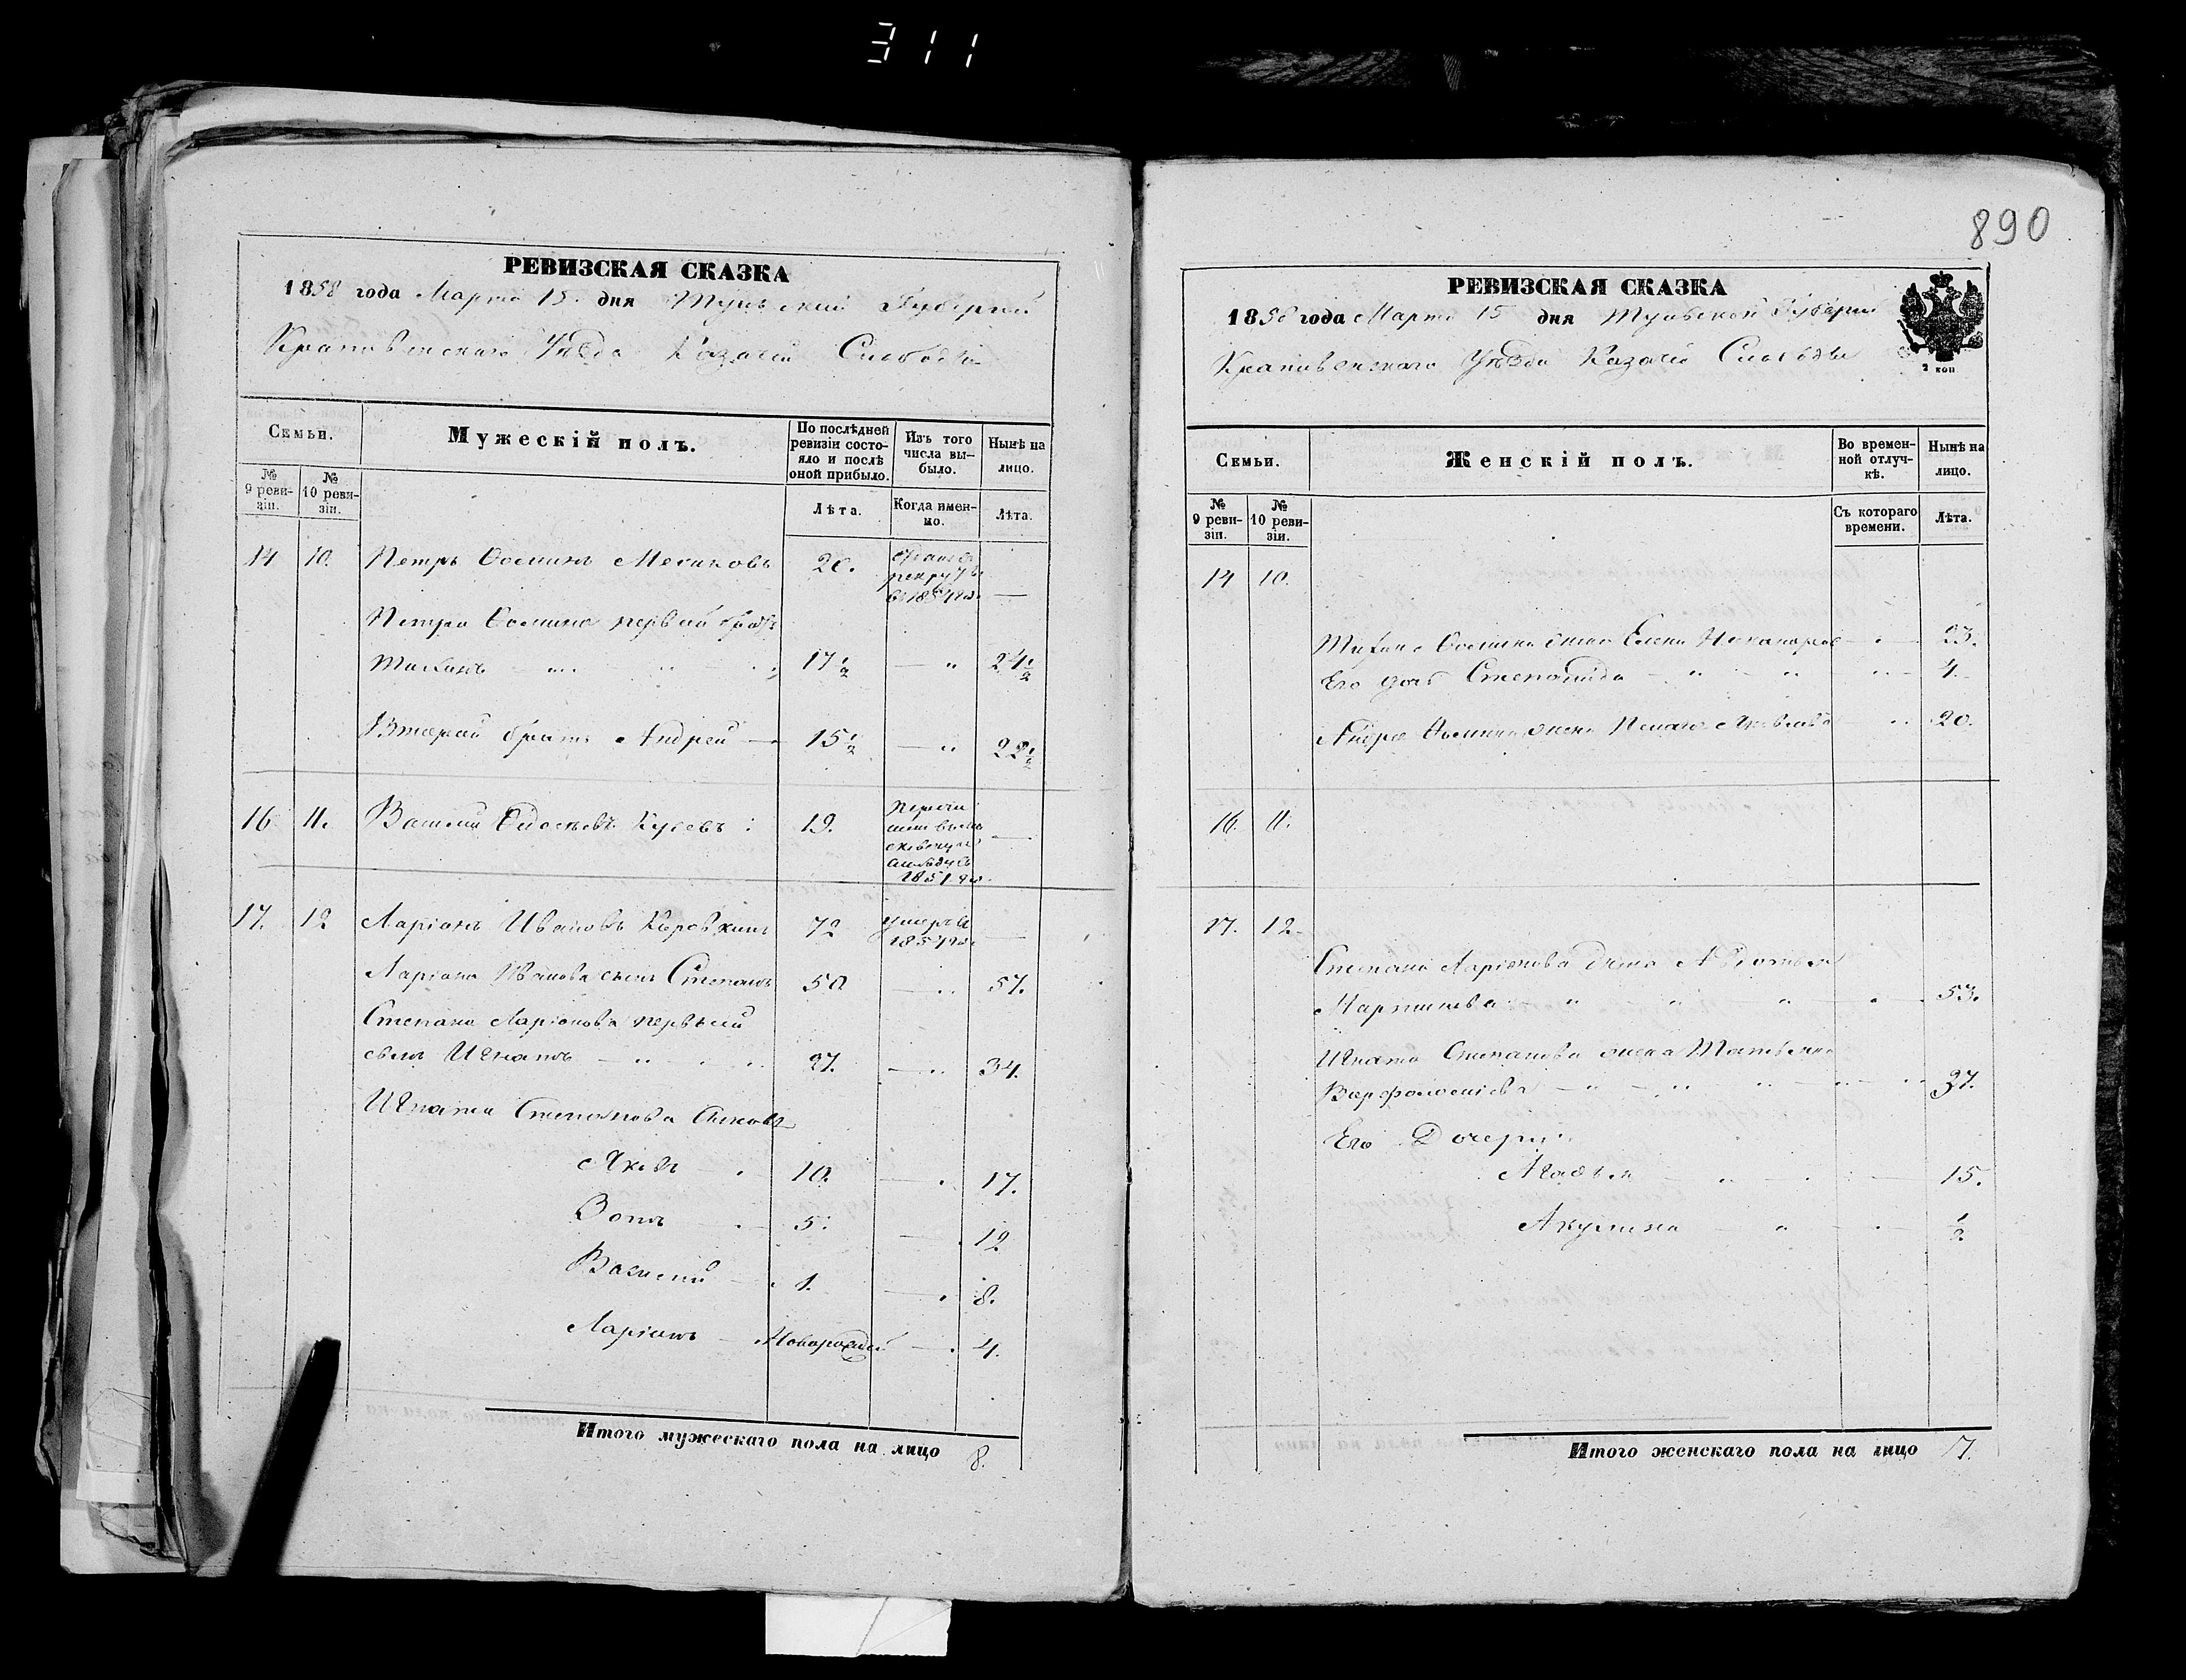 311
РЕВИЗСКАЯ СКАЗКА
1858 года Марта 15 дня Тульской Губернии
Крапивенскаго Уѣзда Казачей Слободы
Семьи.
Мужескій полъ.
По послѣдней ревизіи состояло и послѣ оной прибыло.
Изъ того числа выбыло.
Нынѣ на лицо.
№ 9 ревизіи.
№ 10 ревизіи.
Лѣта.
Когда именно.
Лѣта.
14 10. Петръ 20. рекруты —
въ 1854 го.
Петра первый братъ
17 1/2 — " 24 1/2
Второй братъ Андрей — 15 1/2 — " 22 1/2
16 11. Василий 19. —
1851. го
17. 12 Ларіонъ Ивановъ 72 умеръ въ —
1854 го.
Ларіона Иванова сынъ Степанъ 50 — " 57.
Степана Ларіонова первый
сынъ Игнатъ — " 27. — " 34.
Игната Степанова сыновья
Яковъ — 10. — 17.
5. — 12
Василий — 1. — 8.
Ларіонъ — Новорожден — 4.
Итого мужескаго пола на лицо 8.
890
РЕВИЗСКАЯ СКАЗКА
1858 года Марта 15 дня Тульской Губерніи
Крапивенскаго Уѣзда Казачей Слободы
2 коп
Семьи.
Женскій полъ.
Во временной отлучкѣ.
Нынѣ на лицо.
№ 9 ревизіи.
№ 10 ревизіи.
Съ котораго времени.
Лѣта.
14 10.
жена Елена — " — 23.
Его дочь Степанида — " " — 4.
Андрея жена — " 20.
16. 11.
17. 12.
Степана Ларіонова жена Авдотья
Мартинова — " " " — 53.
Игната Степанова жена Татьяна
Варфоломеіева — " — " " — 37.
Его Дочери:
Агафья — " — 15.
Акулина — " — 1/2
Итого женскаго пола на лицо 7.